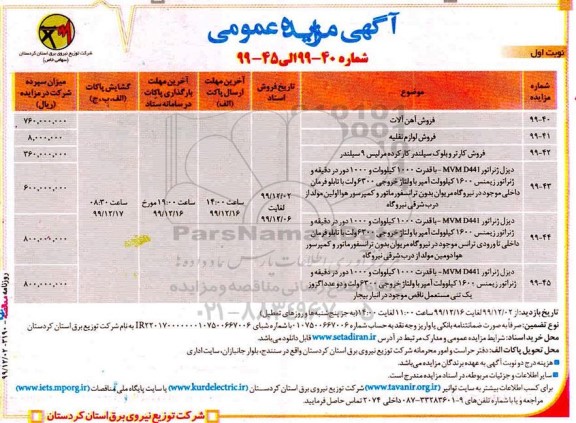 آگهی مزایده عمومی
شماره ۴۰-۹۹ الی ۴۵-۹۹
نوبت اول
شرکت توزیع نیروی برق استان کردستان
(سهامی خاص)
شماره مزایده
موضوع
تاریخ فروش اسناد
آخرین مهلت ارسال پاکت (الف)
آخرین مهلت بارگذاری پاکات در سامانه ستاد
گشایش پاکات (الف، ب، ج)
میزان سپرده شرکت در مزایده (ریال)
۹۹-۴۰ فروش آهن آلات ۷۶۰,۰۰۰,۰۰۰
۹۹-۴۱ فروش لوازم نقلیه ۸,۰۰۰,۰۰۰
۹۹-۴۲ فروش کارتر و بلوک سیلندر کارکرده مرلیس ۹ سیلندر ۳۶۰,۰۰۰,۰۰۰
۹۹-۴۳ دیزل ژنراتور MVM D441 - با قدرت ۱۰۰۰ کیلووات و ۱۰۰۰ دور در دقیقه و
ژنراتور زیمنس ۱۶۰۰ کیلوولت آمپر با ولتاژ خروجی ۶۳۰۰ ولت با تابلو فرمان
داخلی موجود در نیروگاه مریوان بدون ترانسفورماتور و کمپرسور هوا اولین مولد از
درب شرقی نیروگاه
۶۰۰,۰۰۰,۰۰۰
۹۹/۱۲/۰۲
لغایت
۹۹/۱۲/۰۶
ساعت ۱۴:۰۰
۹۹/۱۲/۱۶
ساعت ۱۹:۰۰ مورخ
۹۹/۱۲/۱۶
ساعت ۰۸:۳۰
۹۹/۱۲/۱۷
۹۹-۴۴ دیزل ژنراتور MVM D441 - با قدرت ۱۰۰۰ کیلووات و ۱۰۰۰ دور در دقیقه و
ژنراتور زیمنس ۱۶۰۰ کیلوولت آمپر با ولتاژ خروجی ۶۳۰۰ ولت با تابلو فرمان
داخلی تا ورودی ترانس موجود در نیروگاه مریوان بدون ترانسفورماتور و کمپرسور
هوا دومین مولد از درب شرقی نیروگاه
۸۰۰,۰۰۰,۰۰۰
۹۹-۴۵ دیزل ژنراتور MVM D441 - با قدرت ۱۰۰۰ کیلووات و ۱۰۰۰ دور در دقیقه و
ژنراتور زیمنس ۱۶۰۰ کیلوولت آمپر با ولتاژ خروجی ۶۳۰۰ ولت و دو عدد اگزوز
یک تنی مستعمل ناقص موجود در انبار بیجار
۸۰۰,۰۰۰,۰۰۰
ParsNamad
۰۲۱-۸۸۳۴۹۶۷۰
تاریخ بازدید: از ۹۹/۱۲/۰۲ لغایت ۹۹/۱۲/۱۶ ساعت ۱۱:۰۰ لغایت ۱۴:۰۰ (به جز پنج‌شنبه‌ها و روزهای تعطیل)
نوع تضمین: صرفاً به صورت ضمانتنامه بانکی یا واریز وجه نقد به حساب شماره
به نام شرکت توزیع برق استان کردستان
محل خرید اسناد: شرایط مزایده عمومی و مدارک مرتبط در آدرس www.setadiran.ir قابل دانلود می‌باشد.
محل تحویل پاکات الف: دفتر حراست و امور محرمانه شرکت توزیع نیروی برق استان کردستان واقع در سنندج، بلوار جانبازان، سایت اداری
• هزینه درج دو نوبت آگهی به عهده برندگان مزایده می‌باشد.
• سایر اطلاعات و جزئیات مربوطه، در اسناد مزایده مندرج است.
برای کسب اطلاعات بیشتر به سایت توانیر (www.tavanir.org.ir) یا سایت شرکت توزیع نیروی برق استان کردستان (www.kurdelectric.ir) یا سایت پایگاه ملی مناقصات (www.iets.mporg.ir)
مراجعه و یا با شماره تلفن‌های ۹-۳۳۲۸۳۶۰۱-۰۸۷ داخلی ۲۰۷۴ تماس حاصل فرمایید.
شرکت توزیع نیروی برق استان کردستان